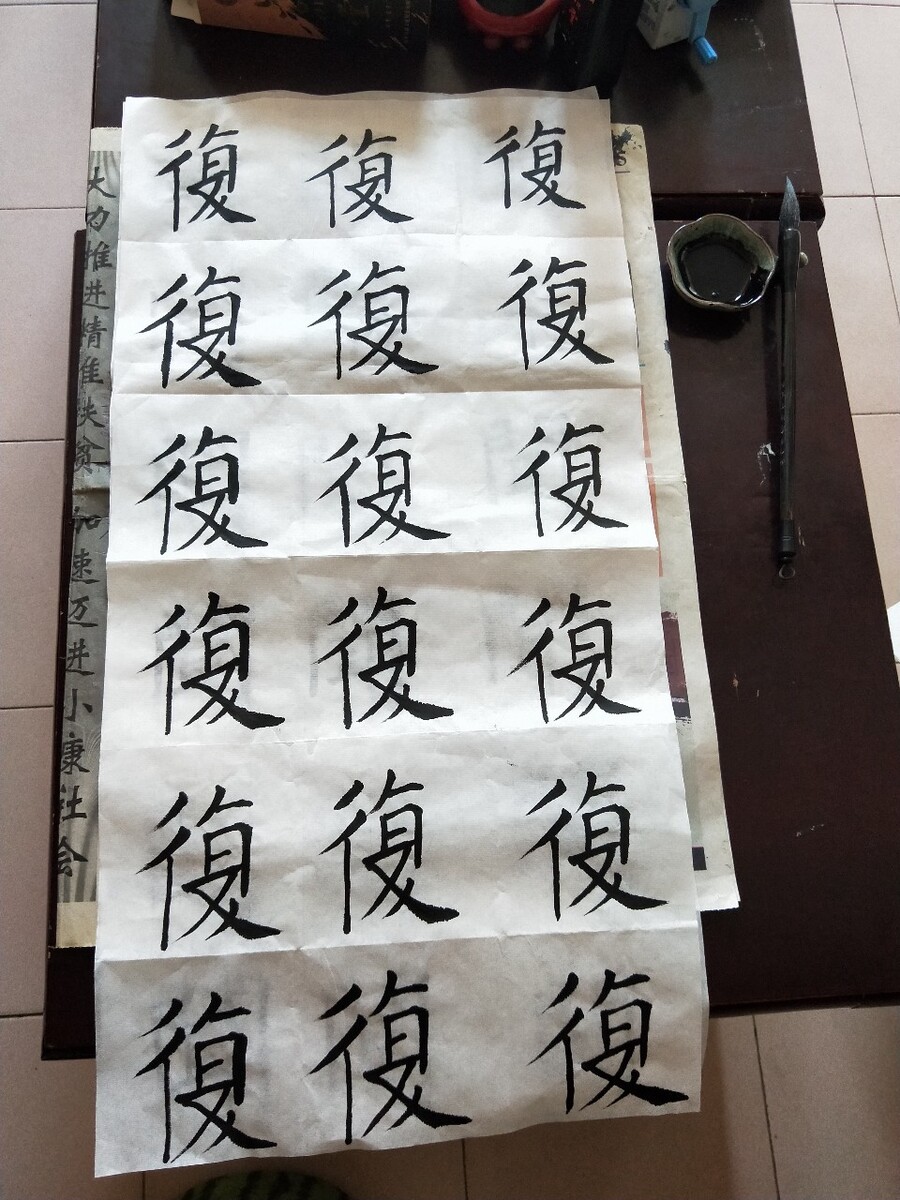 復 復 復
復 復 復
復 復 復
復 復 復
復 復 復
復 復 復
大力推进精准扶贫 加速迈进小康社会